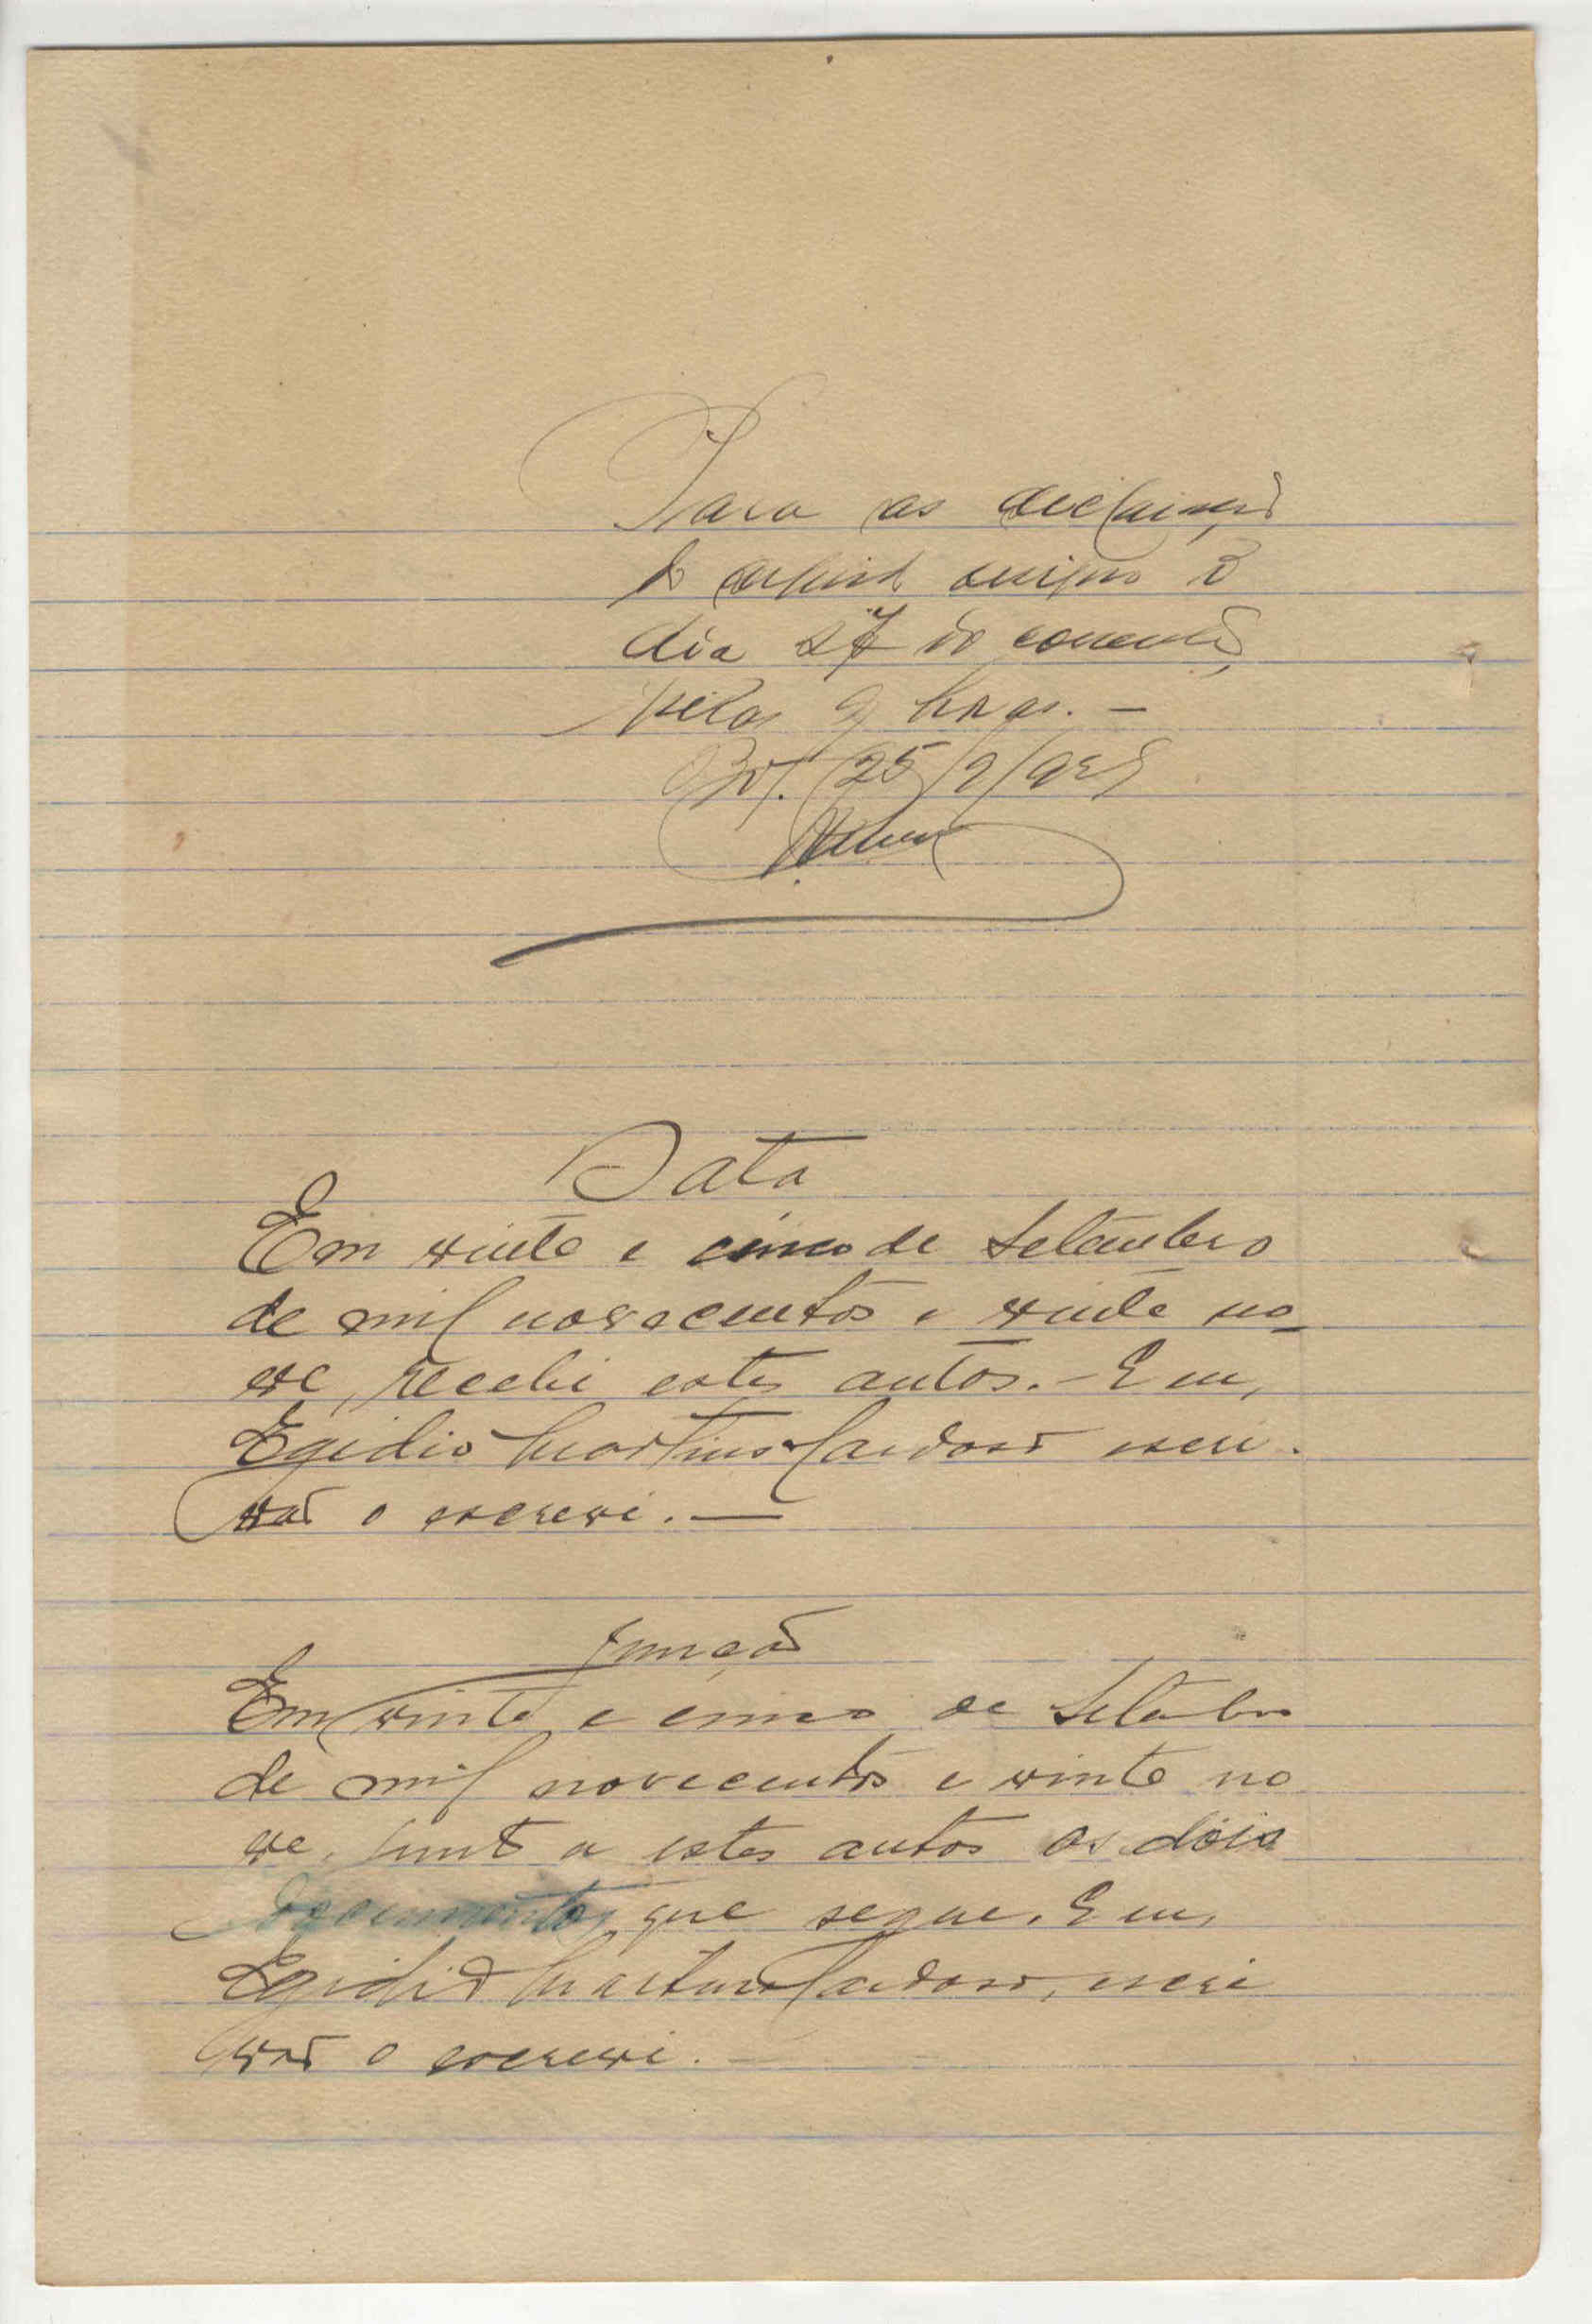 Para as declarações
do arguido designo o
dia 27 do corrente,
pelas 9 horas. —
25/9/929
Data
Em vinte e cinco de Setembro
de mil novecentos e vinte no-
ve, recebi estes autos. — Eu,
Egidio Martins Cardoso escri-
vão o escrevi. —
Junção
Em vinte e cinco de Setembro
de mil novecentos e vinte no
ve, junto a estes autos os dois
documentos que segue. Eu,
Egidio Martins Cardoso, escri
vão o escrevi. —